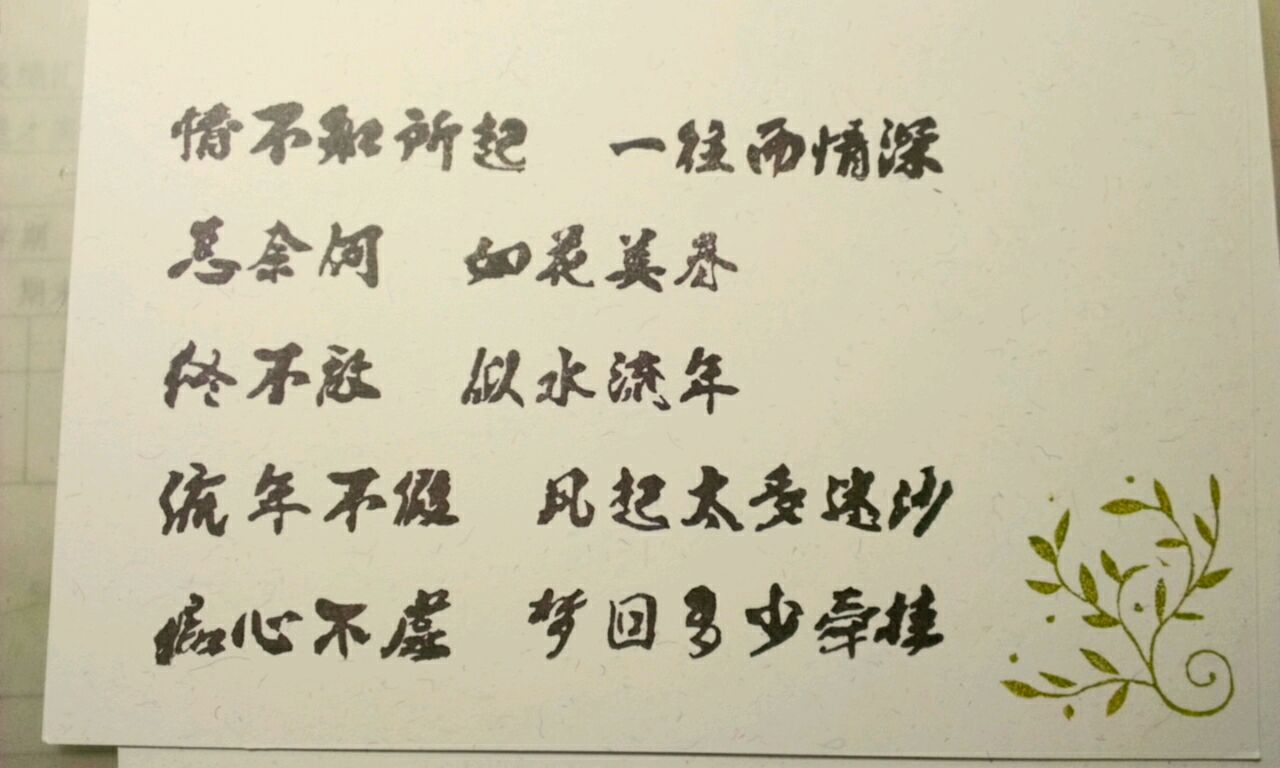 情不知所起　一往而情深
总奈何　如花美眷
终不敌　似水流年
流年不假　风起太多迷沙
痴心不虚　梦回多少牵挂